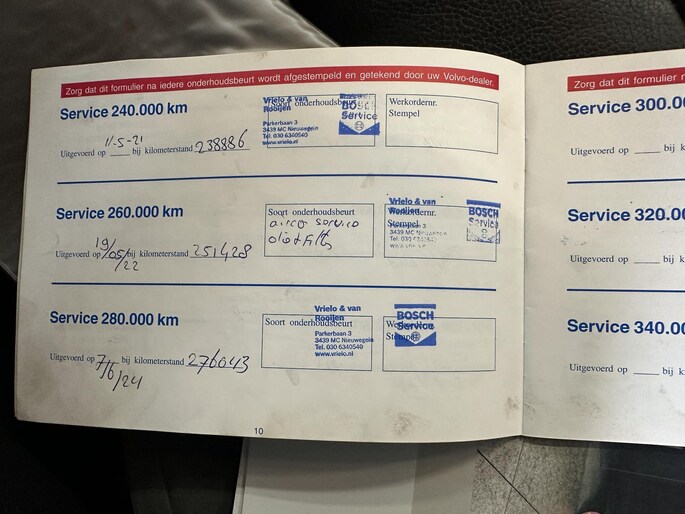 Zorg dat dit formulier na iedere onderhoudsbeurt wordt afgestempeld en getekend door uw Volvo-dealer.
Service 240.000 km
11-5-21
Uitgevoerd op ____ bij kilometerstand 238886
Soort onderhoudsbeurt
Vrielo & van
Rooijen
Parkerbaan 3
3439 MC Nieuwegein
Tel. 030 6340540
www.vrielo.nl
BOSCH
Service
Werkordernr.
Stempel
Service 260.000 km
19/05/22
Uitgevoerd op bij kilometerstand 251428
Soort onderhoudsbeurt
airco service
Vrielo & van
Rooijen
Werkordernr.
Stempel
Parkerbaan 3
3439 MC Nieuwegein
Tel. 030
BOSCH
Service
Service 280.000 km
Uitgevoerd op 7/6/24 bij kilometerstand 276043
Soort onderhoudsbeurt
Vrielo & van
Rooijen
Parkerbaan 3
3439 MC Nieuwegein
Tel. 030 6340540
www.vrielo.nl
Werkordernr.
Stempel
BOSCH
Service
10
Zorg dat dit formulier
Service 300.0
Uitgevoerd op ____ bij k
Service 320.0
Uitgevoerd op ____ bij k
Service 340.0
Uitgevoerd op ____ bij k